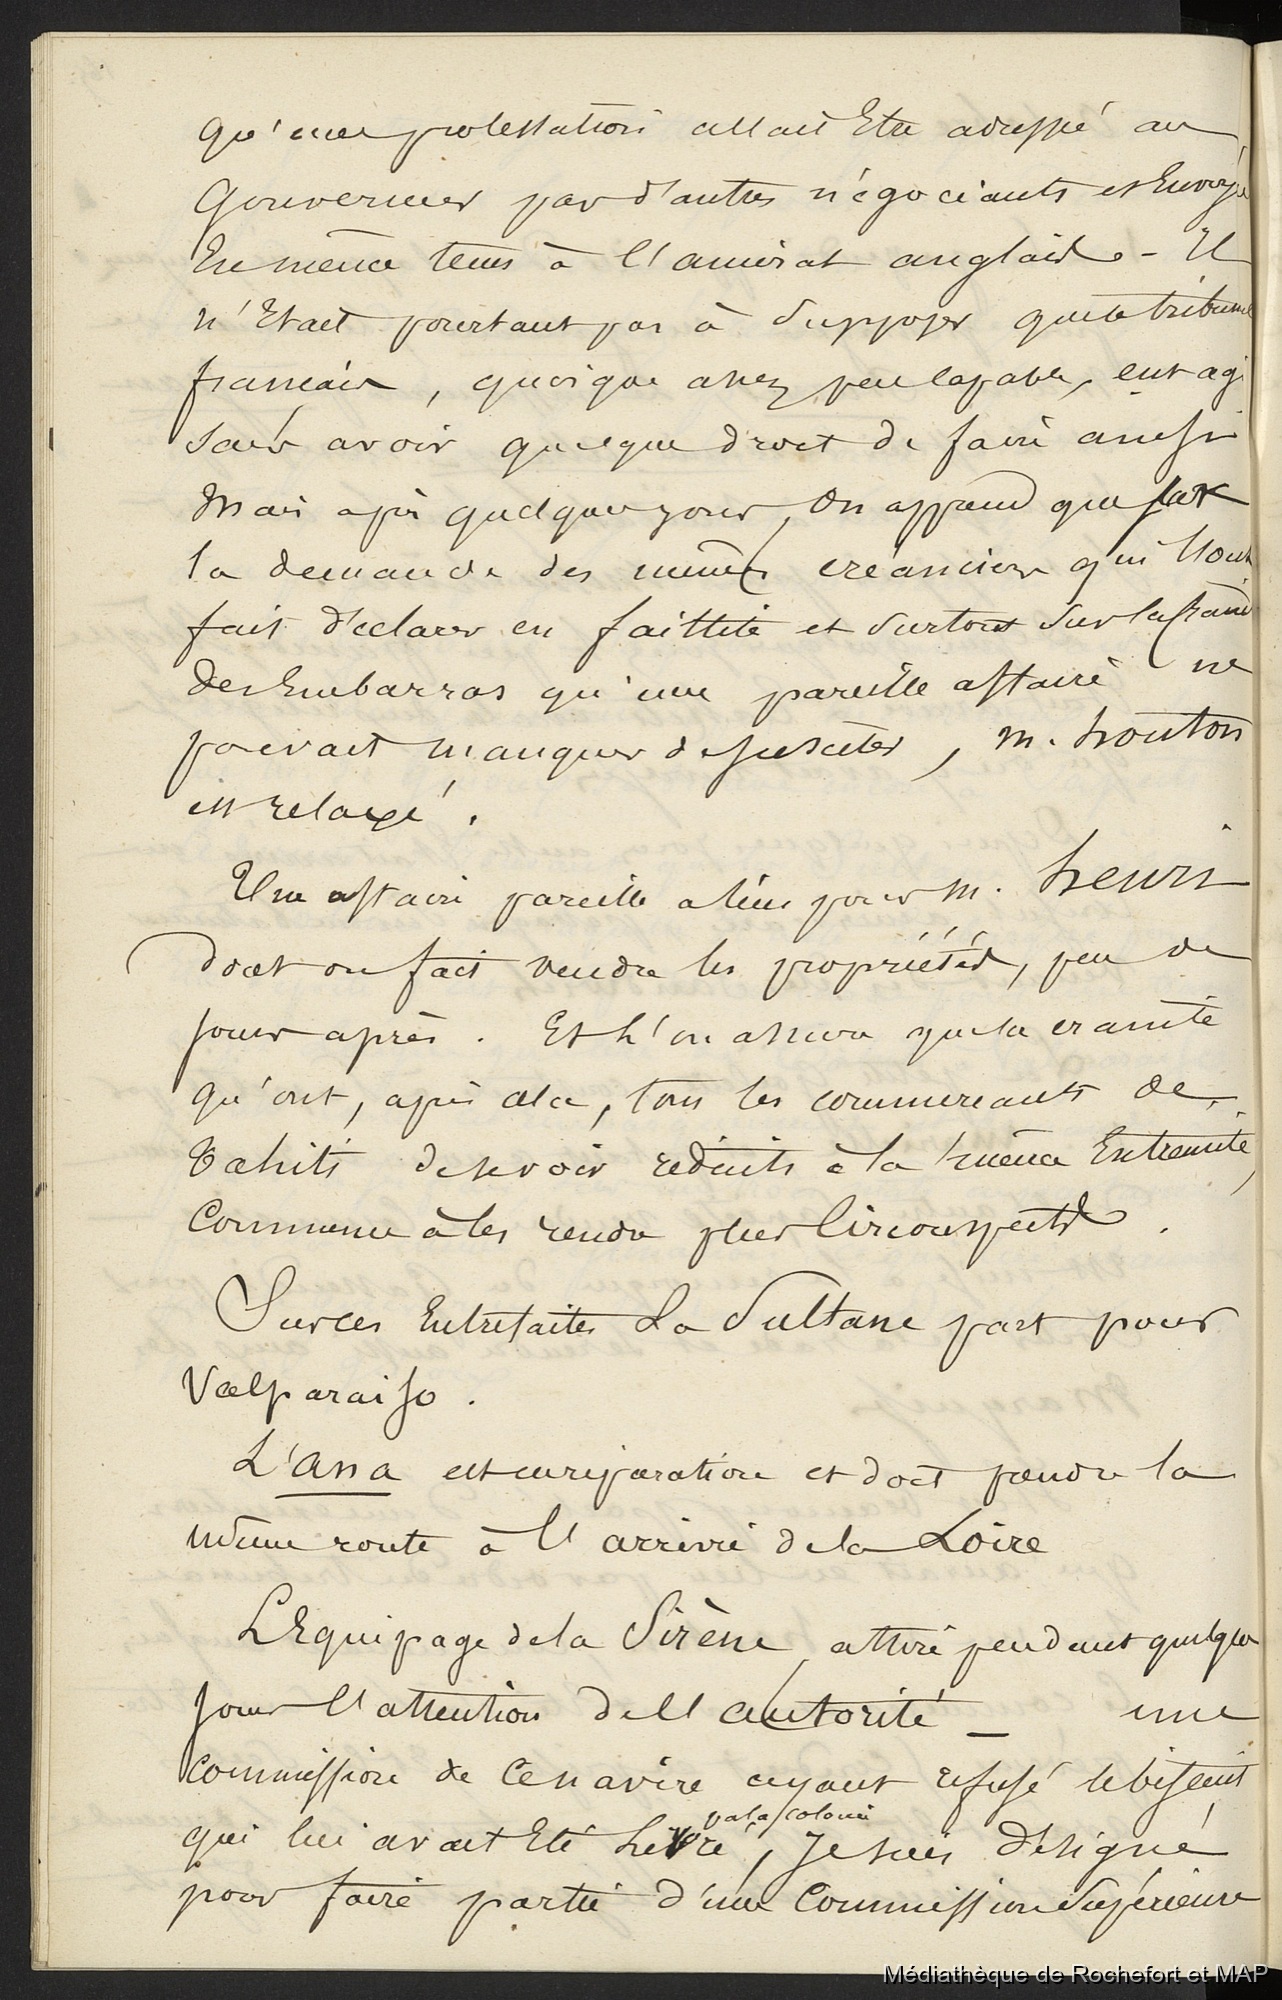 qu'une protestation allait Etre adressé au
Gouverneur par d'autres négociants et Envoyé
En même tems à l'amiral anglais. - Il
n'Etait pourtant pas à supposer que le tribunal
francais, quoique assez peu capable, eut agi
sans avoir quelque droit de faire ainsi
Mais après quelques jours, On apprend que sur
la demande des mêmes créanciers qui l'ont
fait déclarer en faillite et surtout sur la crainte
des Embarras qu'une pareille affaire ne
pouvait manquer de susciter, M. houton
est relaxé.
Une affaire pareille a lieu pour M. henri
dont on fait vendre les propriétés, peu de
jours après. Et l'on assure que la crainte
qu'ont, après cela, tous les commercants de
Tahiti de se voir réduits à la même Extremité,
Commence à les rendre plus Circonspects.
Sur ces Entrefaites La Sultane part pour
Valparaiso.
L'ana est en réparation et doit prendre la
même route à l'arrivée de la Loire
L'Equipage de la Sirène attire pendant quelques
jours l'attention de l'autorité - une
commission de ce navire ayant refusé le biscuit
par la colonie
qui lui avait Eté livré, Je suis désigné
pour faire partie d'une Commission Supérieure
Médiathèque de Rochefort et MAP